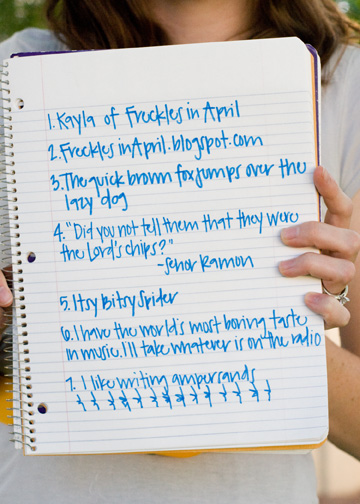 1. Kayla of Freckles in April
2. FrecklesinApril.blogspot.com
3. The quick brown fox jumps over the
lazy dog
4. "Did you not tell them that they were
the Lord's chips?"
-Senor Ramon
5. Itsy Bitsy Spider
6. I have the world's most boring taste
in music. I'll take whatever is on the radio
7. I like writing ampersands